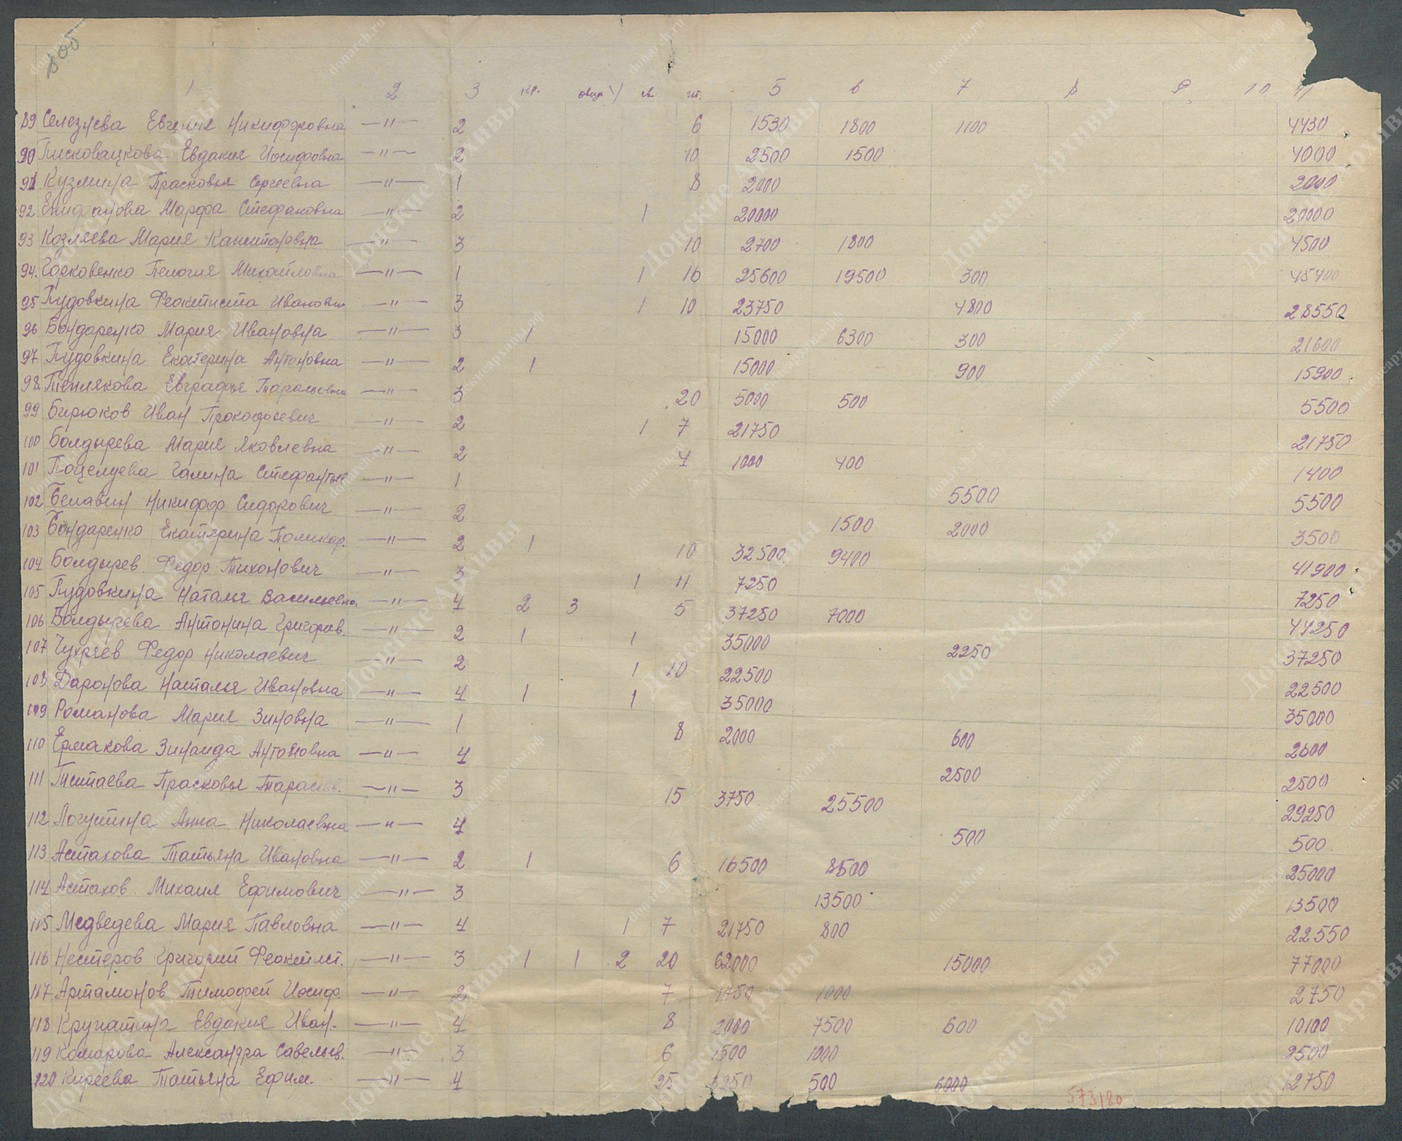 805
1 2 3 кр. овцы св. пт. 5 6 7 8 9 10 11
89 Селезнева Евгения Никифоровна —"— 2 6 1530 1800 1100 4430
90 Писковацкова Евдокия Иосифовна —"— 2 10 2500 1500 4000
91 Кузмина Прасковья Сергеевна —"— 1 8 2000 2000
92 Епифанова Марфа Стефановна —"— 2 1 20000 20000
93 Козляева Мария —"— 3 10 2700 1800 4500
94. Горковенко Пелогия Михайловна —"— 1 1 16 25600 19500 300 45400
95 Пудовкина Феоктиста Ивановн —"— 3 1 10 23750 4800 28550
96 Бондаренко Мария Ивановна —"— 3 1 15000 6300 300 21600
97 Пудовкина Екатерина Антоновна —"— 2 1 15000 900 15900
98 Евграфья Тарасьевна —"— 3 20 5000 500 5500
99 Бирюков Иван Прокофьевич —"— 2 1 7 21750 21750
100 Болдырева Мария Яковлевна —"— 2 4 1000 400 1400
101 Поцелуева Галина —"— 1 5500 5500
102 Белавин Никифор Сидорович —"— 2 1500 2000 3500
103 Бондаренко Екатерина Поликар. —"— 2 1 10 32500 9400 41900
104 Болдырев Федор Тихонович —"— 3 1 11 7250 7250
105 Пудовкина Наталья Васильевна —"— 4 2 3 5 37250 7000 44250
106 Болдырева Антонина Григоров. —"— 2 1 1 35000 2250 37250
107 Федор Николаевич —"— 2 1 10 22500 22500
108 Даронова Наталья Ивановна —"— 4 1 1 35000 35000
109 Романова Мария Зиновна —"— 1 8 2000 600 2600
110 Ермакова Зинаида Антоновна —"— 4 2500 2500
111 Титаева Прасковья Тарасов. —"— 3 15 3750 25500 29250
112 Логутина Анна Николаевна —"— 4 500 500
113 Астахова Татьяна Ивановна —"— 2 1 6 16500 8500 25000
114 Астахов Михаил Ефимович —"— 3 13500 13500
115 Медведева Мария Павловна —"— 4 1 7 21750 800 22550
116 Нестеров Григорий Феоктист. —"— 3 1 1 2 20 62000 15000 77000
117 Артамонов Тимофей Иосиф. —"— 2 7 1750 1000 2750
118 Евдокия Иван. —"— 4 8 2000 7500 600 10100
119 Комарова Александра Савельев. —"— 3 6 1500 1000 2500
120 Киреева Татьяна Ефим. —"— 4 25 500 6000 12750
573180